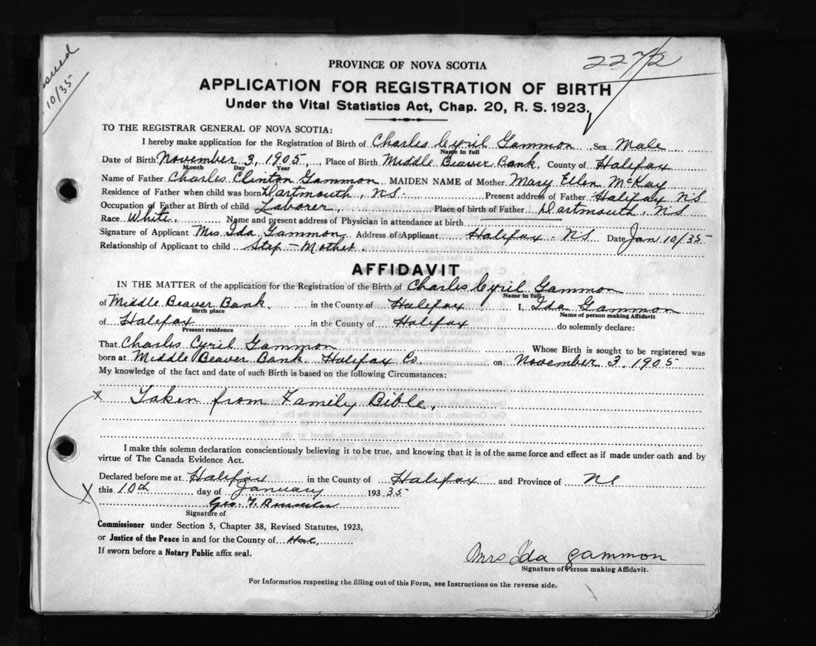 issued
10/35
2272
PROVINCE OF NOVA SCOTIA
APPLICATION FOR REGISTRATION OF BIRTH
Under the Vital Statistics Act, Chap. 20, R. S. 1923.
TO THE REGISTRAR GENERAL OF NOVA SCOTIA:
I hereby make application for the Registration of Birth of Charles Cyril Gammon Sex Male
Name in full
Date of Birth November 3, 1905, Place of Birth Middle Beaver Bank. County of Halifax
Month Day Year
Name of Father Charles Clinton Gammon MAIDEN NAME of Mother Mary Ellen McKay
Residence of Father when child was born Dartmouth, NS. Present address of Father Halifax NS
Occupation of Father at Birth of child Laborer, Place of birth of Father Dartmouth, NS
Race White. Name and present address of Physician in attendance at birth
Signature of Applicant Mrs. Ida Gammon Address of Applicant Halifax. NS Date Jan 10/35
Relationship of Applicant to child Step-Mother.
AFFIDAVIT
IN THE MATTER of the application for the Registration of the Birth of Charles Cyril Gammon
Name in full
of Middle Beaver Bank. in the County of Halifax I, Ida Gammon
Birth place Name of person making Affidavit
of Halifax in the County of Halifax do solemnly declare:
Present residence
That Charles Cyril Gammon Whose Birth is sought to be registered was
born at Middle Beaver Bank Halifax Co. on November 3, 1905
My knowledge of the fact and date of such Birth is based on the following Circumstances:
x Taken from Family Bible.
I make this solemn declaration conscientiously believing it to be true, and knowing that it is of the same force and effect as if made under oath and by
virtue of The Canada Evidence Act.
Declared before me at Halifax in the County of Halifax and Province of NS
this 10th day of January 193 35
X Geo. F.
Signature of
Commissioner under Section 5, Chapter 38, Revised Statutes, 1923,
or Justice of the Peace in and for the County of
If sworn before a Notary Public affix seal.
Mrs Ida Gammon
Signature of Person making Affidavit.
For Information respecting the filling out of this Form, see Instructions on the reverse side.